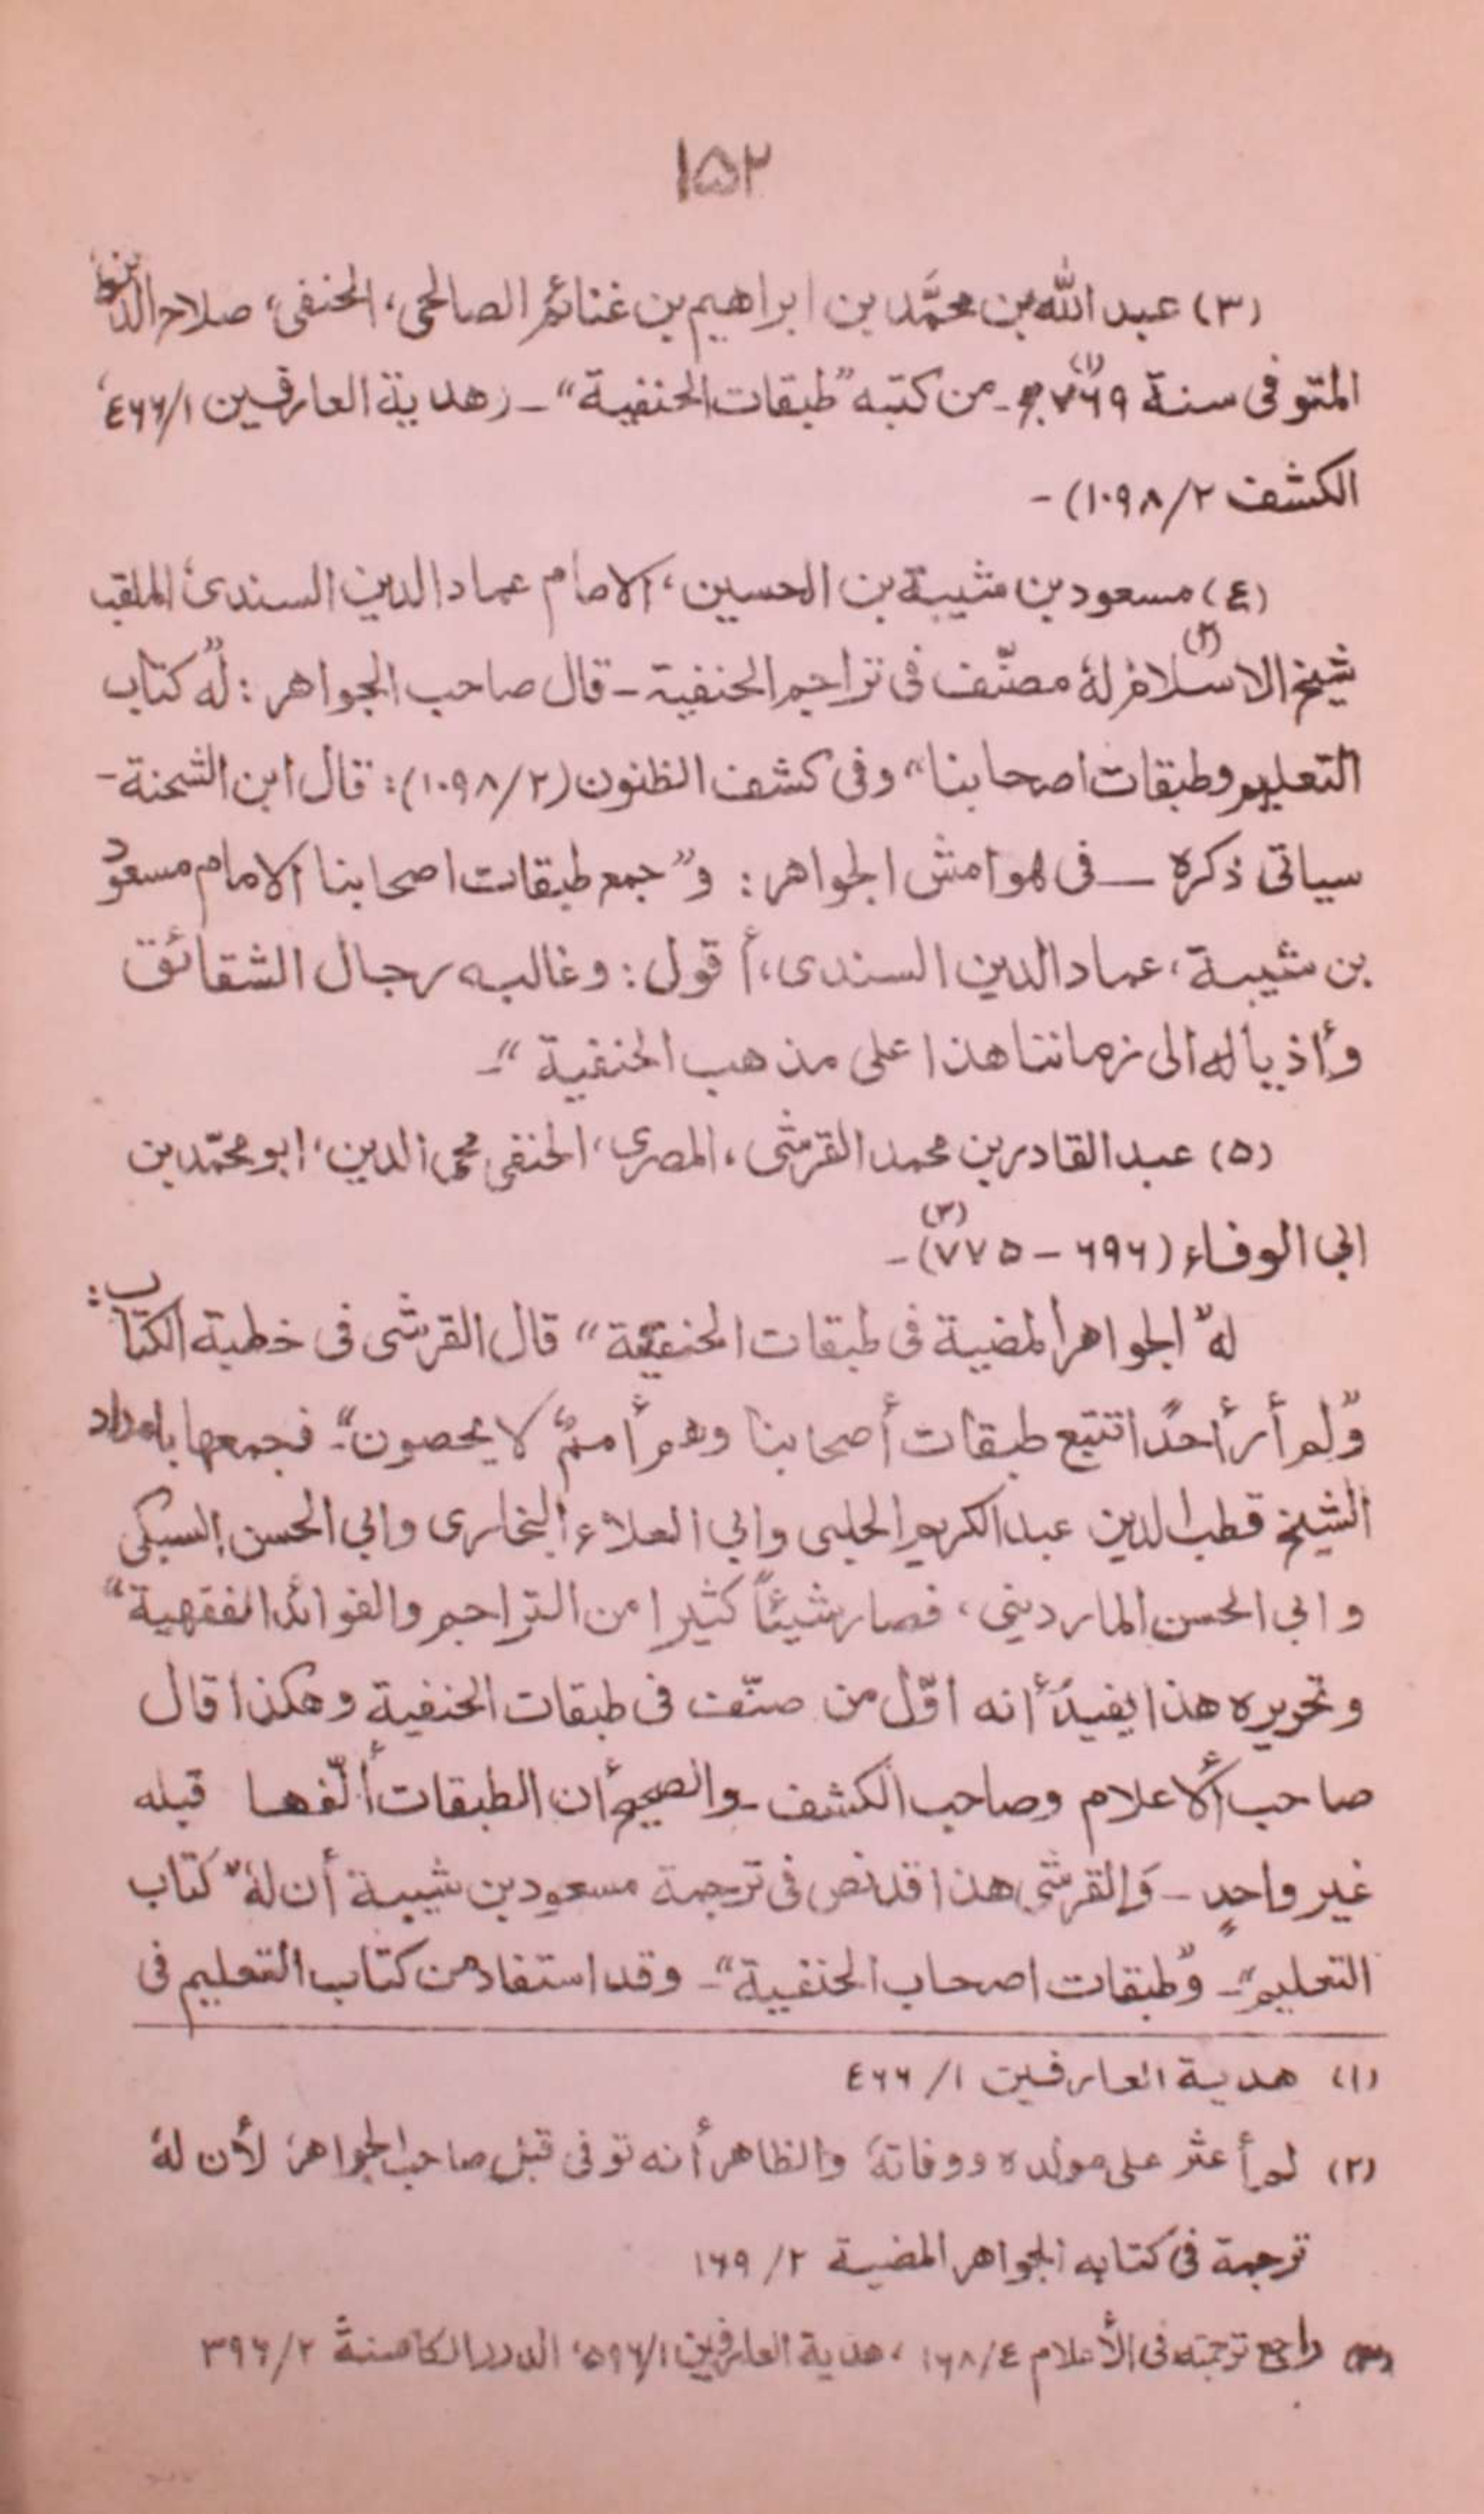 ۱۵۲
(۳) عبد الله بن محمَّد بن ابراهيم بن غنائم الصالحى، الحنفى، صلاح الدين،
المتوفى سنة ۷۶۹ھ(۱)ـ من كتبه "طبقات الحنفية" ـ (هدية العارفين ٤۶۶/۱،
الكشف ۱۰۹۸/۲) ـ
(٤) مسعود بن شيبة بن الحسين، الامام عماد الدين السندى الملقب
شيخ الاسلام(۲) لهٔ مصنّف فى تراجم الحنفية ـ قال صاحب الجواهر: لهٗ "كتاب
التعليم وطبقات اصحابنا" وفى كشف الظنون (۱۰۹۸/۲): قال ابن الشحنة ـ
سياتى ذكره ـ فى هوامش الجواهر: و"جمع طبقات اصحابنا الامام مسعود
بن شيبة، عماد الدين السندى، أقول: وغالبه رجال الشقائق
وأذياله الى زماننا هذا على مذهب الحنفية" ـ
(۵) عبد القادر بن محمد القرشى، المصرى، الحنفى محى الدين، ابو محمّد بن
ابي الوفاء (۶۹۶ ـ ۷۷۵)(۳) ـ
لهٗ "الجواهر المضية فى طبقات الحنفية" قال القرشى فى خطبة الكتاب:
"ولم أر أحدًا تتبع طبقات أصحابنا وهم أممٌ لا يحصون" ـ فجمعها بامداد
الشيخ قطب الدين عبد الكريم الحلبى وابي العلاء البخارى وابي الحسن السبكى
وابي الحسن الماردينى، فصار شيئاً كثيرا من التراجم والفوائد الفقهية"
وتحريره هذا يفيد أنه اوّل من صنّف فى طبقات الحنفية وهكذا قال
صاحب الأعلام وصاحب الكشف ـ والصحيح أن الطبقات ألّفها قبله
غير واحدٍ ـ وَالقرشى هذا قد نص فى ترجمة مسعود بن شيبة أن لهٗ "كتاب
التعليم" ـ و"طبقات اصحاب الحنفية" ـ وقد استفاد من كتاب التعليم فى
(۱) هدية العارفين ۱/ ٤۶۶
(۲) لم أعثر على مولده ووفاتهٔ والظاهر أنه توفى قبل صاحب الجواهر لأن لهٔ
ترجمة فى كتابه الجواهر المضية ۲/ ۱۶۹
(۳) راجع ترجمته فى الأعلام ٤/ ۱۶۸، هدية العارفين ۵۹۶/۱، الدرر الكامنة ۳۹۶/۲